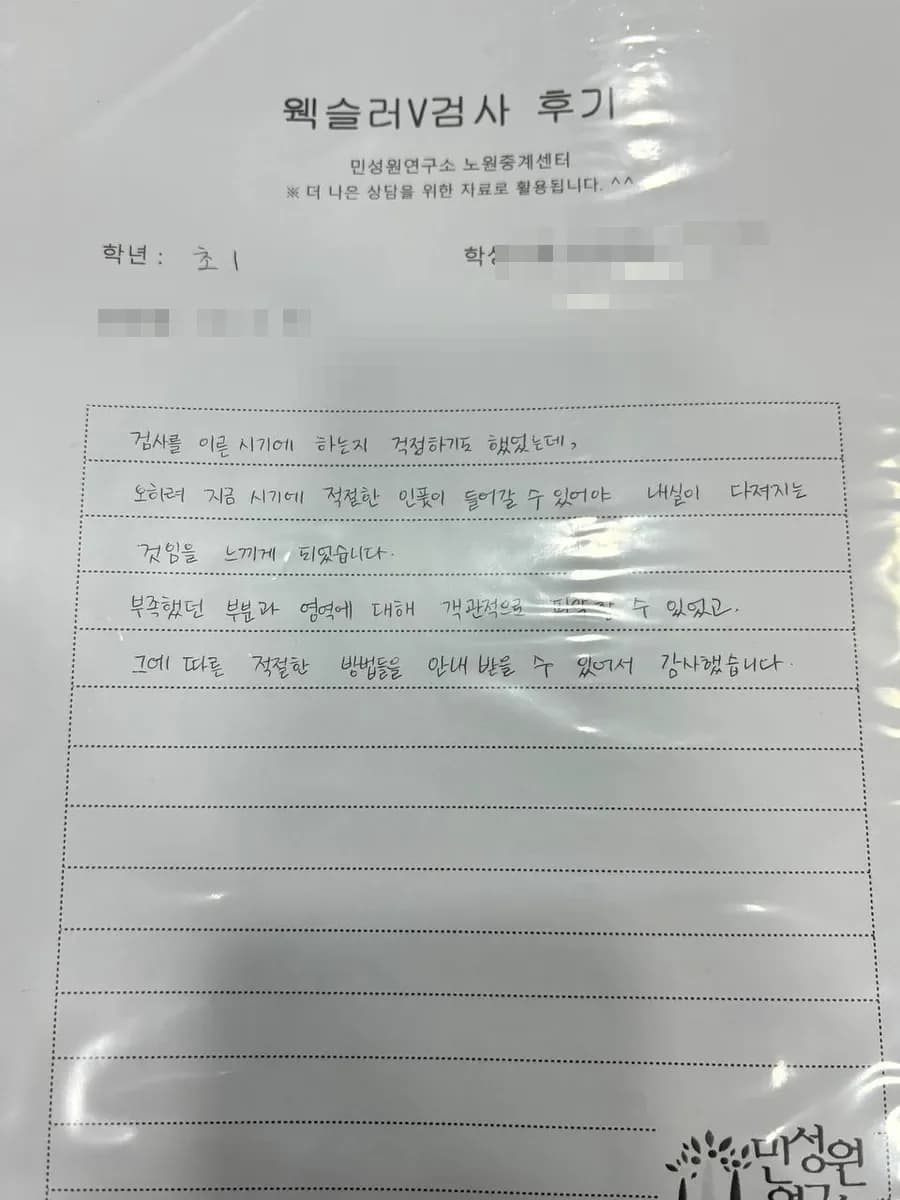 웩슬러V검사 후기
민성원연구소 노원중계센터
※ 더 나은 상담을 위한 자료로 활용됩니다. ^^
학년 : 초 1 학
검사를 이른 시기에 하는지 걱정하기도 했었는데,
오히려 지금 시기에 적절한 인풋이 들어갈 수 있어야 내실이 다져지는
것임을 느끼게 되었습니다.
부족했던 부분과 영역에 대해 객관적으로 파악할 수 있었고,
그에 따른 적절한 방법들을 안내 받을 수 있어서 감사했습니다.
민성원